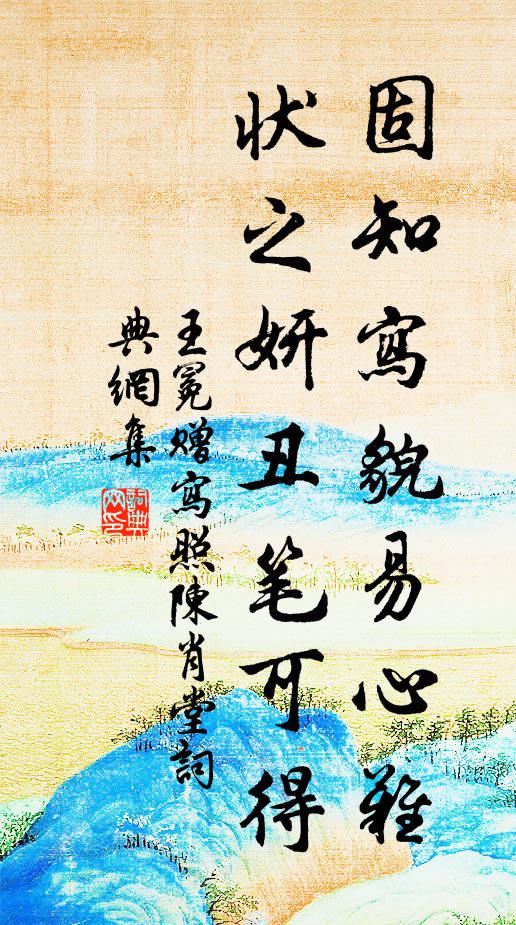 固知寫貌易心難
状之妍丑笔可得
王冕贈寫照陳肖堂詞
典網集
詞典網印